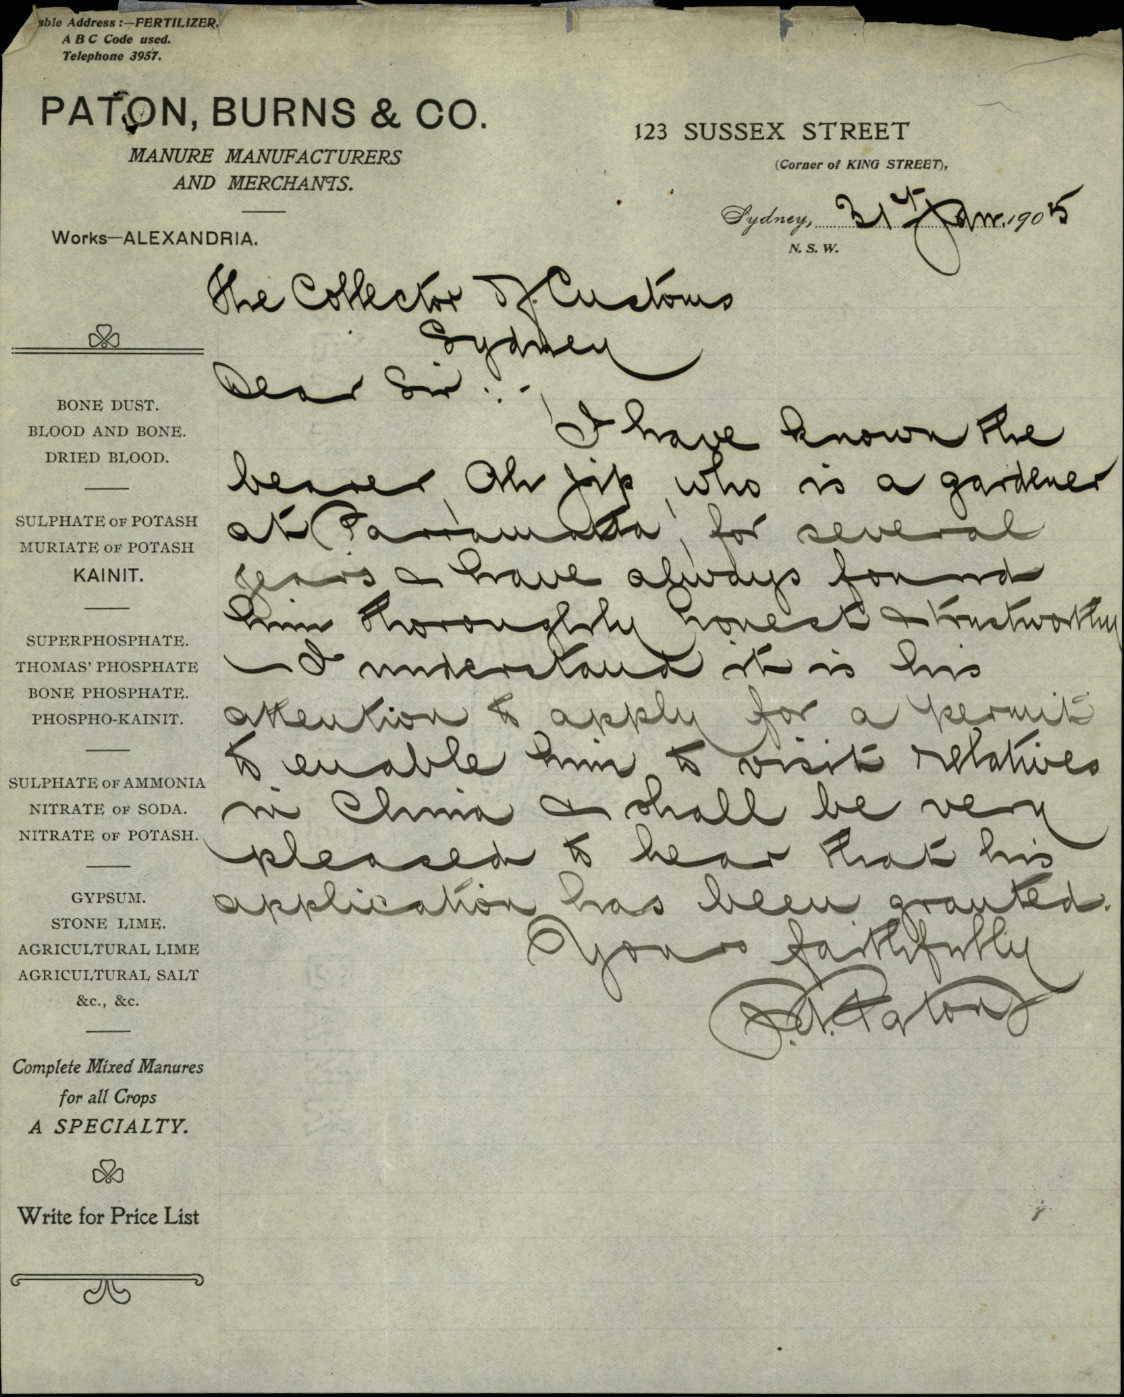 able Address:—FERTILIZER.
A B C Code used.
Telephone 3957.
PATON, BURNS & CO.
MANURE MANUFACTURERS
AND MERCHANTS.
Works—ALEXANDRIA.
123 SUSSEX STREET
(Corner of KING STREET),
Sydney, 31st Jan. 1905
N. S. W.
The Collector of Customs
Sydney
Dear Sir :-
I have known the
bearer, Ah Jip, who is a gardener
at Parramatta, for several
years & have always found
him thoroughly honest & trustworthy
— I understand it is his
attention to apply for a permit
to enable him to visit relatives
in China & shall be very
pleased to hear that his
application has been granted.
Yours faithfully
Paton
BONE DUST.
BLOOD AND BONE.
DRIED BLOOD.
SULPHATE OF POTASH
MURIATE OF POTASH
KAINIT.
SUPERPHOSPHATE.
THOMAS' PHOSPHATE
BONE PHOSPHATE.
PHOSPHO-KAINIT.
SULPHATE OF AMMONIA
NITRATE OF SODA.
NITRATE OF POTASH.
GYPSUM.
STONE LIME.
AGRICULTURAL LIME
AGRICULTURAL SALT
&c., &c.
Complete Mixed Manures
for all Crops
A SPECIALTY.
Write for Price List